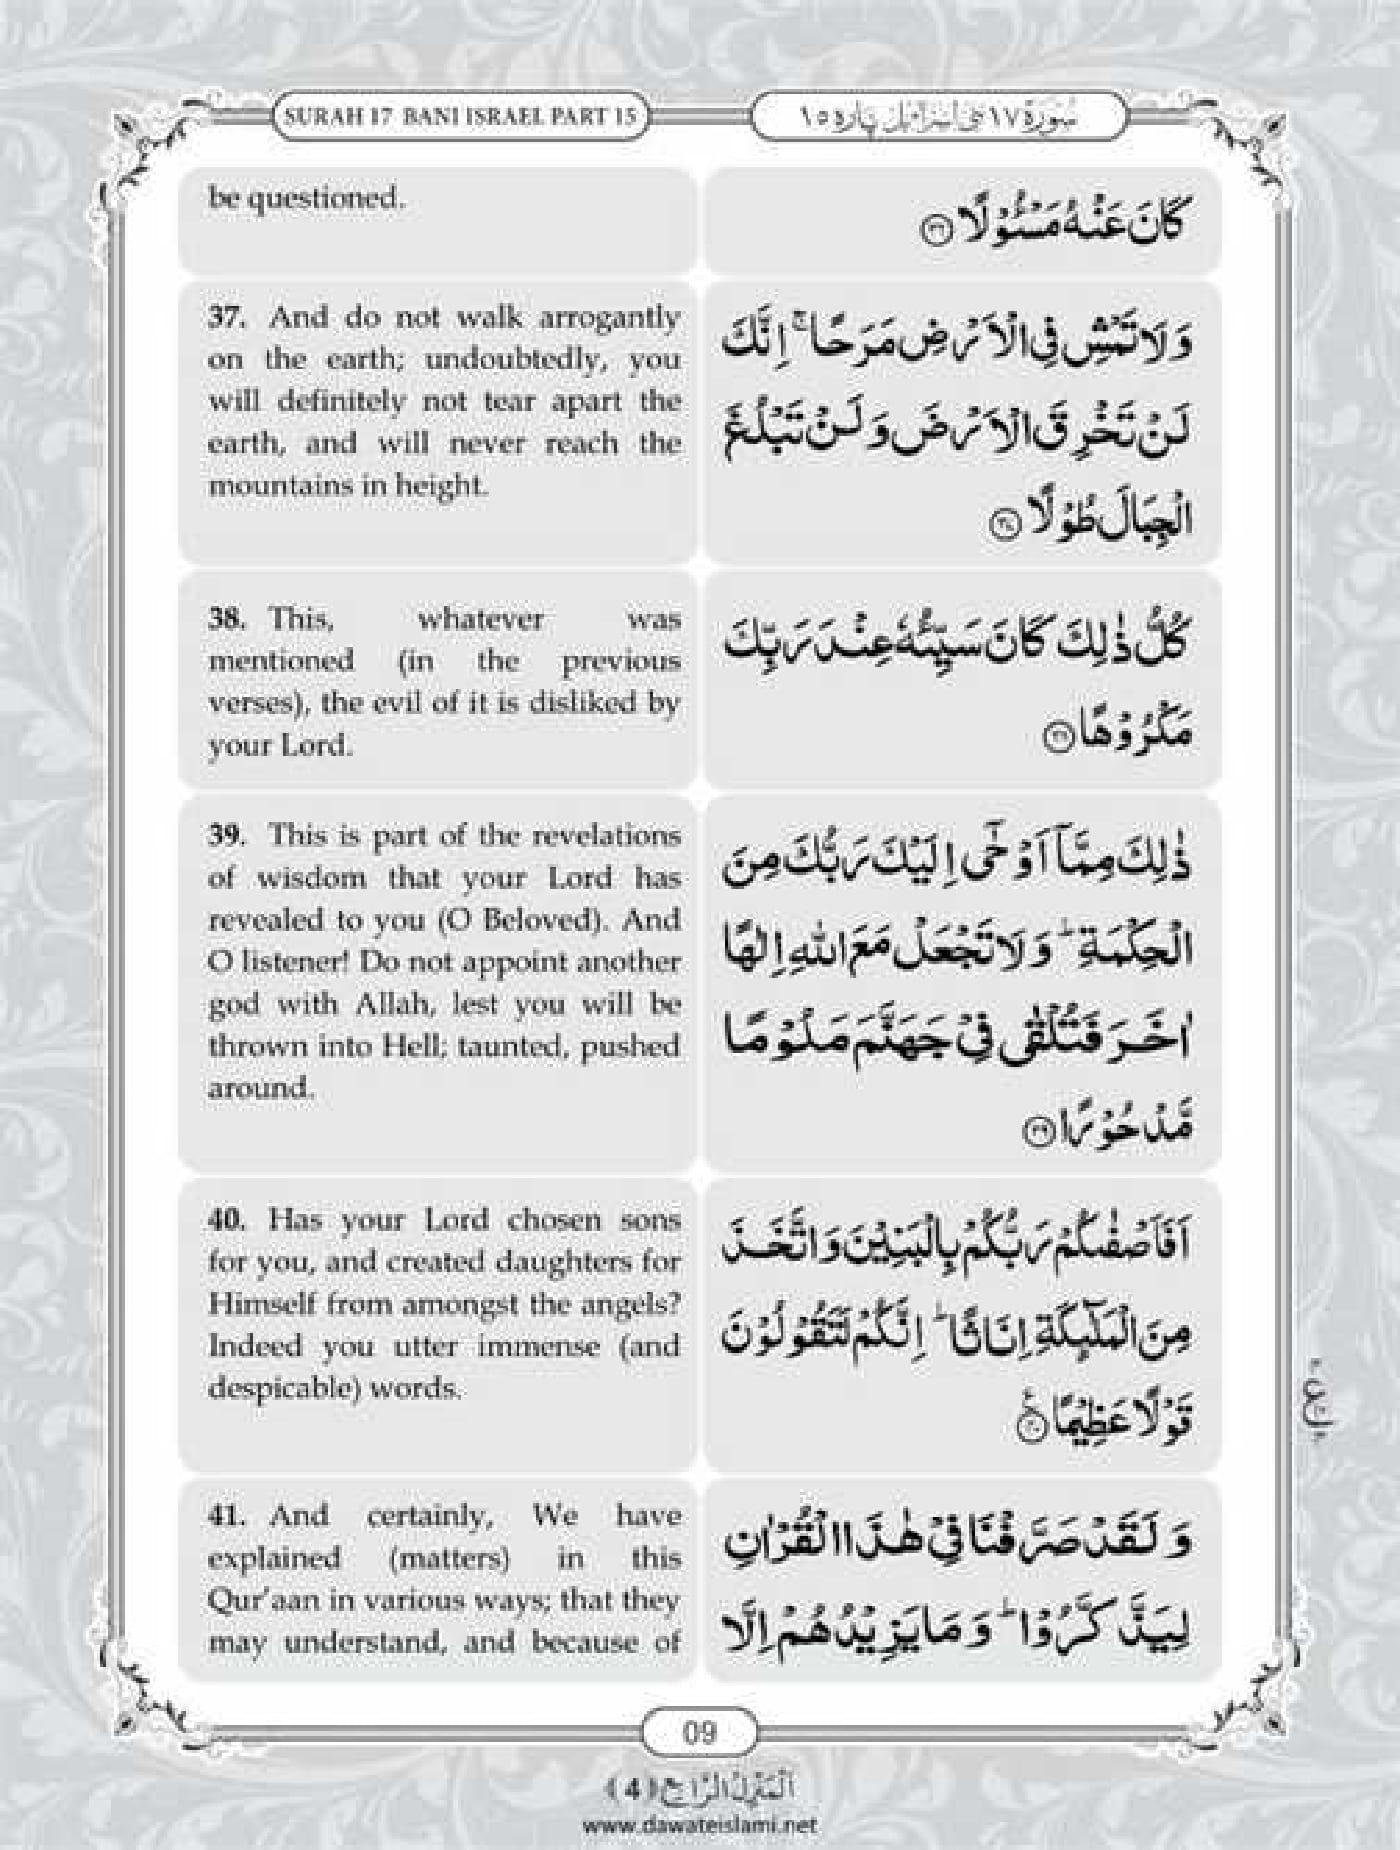 SURAH 17 BANI ISRAEL PART 15
سُورَة ١٧ بَنِیْ اِسْرَآءِیْل پارہ ١٥
be questioned.
كَانَ عَنْهُ مَسْـُٔوْلًا ۝٣٦
37. And do not walk arrogantly
on the earth; undoubtedly, you
will definitely not tear apart the
earth, and will never reach the
mountains in height.
وَلَا تَمْشِ فِی الْاَرْضِ مَرَحًا ۚ اِنَّكَ
لَنْ تَخْرِقَ الْاَرْضَ وَ لَنْ تَبْلُغَ
الْجِبَالَ طُوْلًا ۝٣٧
38. This, whatever was
mentioned (in the previous
verses), the evil of it is disliked by
your Lord.
كُلُّ ذٰلِكَ كَانَ سَیِّئُهٗ عِنْدَ رَبِّكَ
مَكْرُوْهًا ۝٣٨
39. This is part of the revelations
of wisdom that your Lord has
revealed to you (O Beloved). And
O listener! Do not appoint another
god with Allah, lest you will be
thrown into Hell; taunted, pushed
around.
ذٰلِكَ مِمَّاۤ اَوْحٰۤی اِلَیْكَ رَبُّكَ مِنَ
الْحِكْمَةِ ؕ وَ لَا تَجْعَلْ مَعَ اللّٰهِ اِلٰهًا
اٰخَرَ فَتُلْقٰی فِیْ جَهَنَّمَ مَلُوْمًا
مَّدْحُوْرًا ۝٣٩
40. Has your Lord chosen sons
for you, and created daughters for
Himself from amongst the angels?
Indeed you utter immense (and
despicable) words.
اَفَاَصْفٰىكُمْ رَبُّكُمْ بِالْبَنِیْنَ وَ اتَّخَذَ
مِنَ الْمَلٰٓىِٕكَةِ اِنَاثًا ؕ اِنَّكُمْ لَتَقُوْلُوْنَ
قَوْلًا عَظِیْمًا ۝٤٠
41. And certainly, We have
explained (matters) in this
Qur'aan in various ways; that they
may understand, and because of
وَ لَقَدْ صَرَّفْنَا فِیْ هٰذَا الْقُرْاٰنِ
لِیَذَّكَّرُوْا ؕ وَ مَا یَزِیْدُهُمْ اِلَّا
09
اَلْمَنْزِلُ الرَّابِع ﴿4﴾
www.dawateislami.net